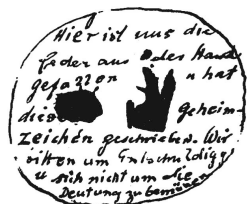 Hier ist uns die
Feder aus des Hand
gefallen u hat
diese geheim-
zeichen geschrieben. Wir
bitten um Entschuldigg
u sich nicht um die
Deutung zu bemühen